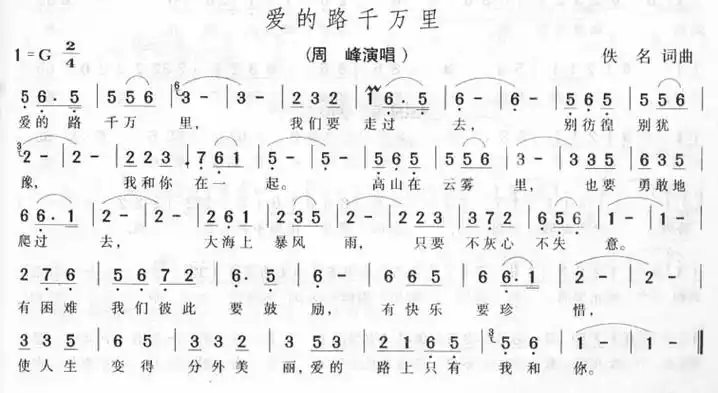 爱的路千万里
1=G 2/4 (周 峰演唱) 佚 名 词曲
5 6. 5 | 5 5 6 | 3 - | 3 - | 2 3 2 | 1 6. 5 | 6 - | 6 - | 5 6 5 | 5 5 6 |
爱的 路 千万 里， 我们要 走过 去， 别彷徨 别犹
2 - | 2 - | 2 2 3 | 7 6 1 | 5 - | 5 - | 5 6 5 | 5 5 6 | 3 - | 3 - | 3 3 5 | 6 3 5 |
豫， 我和你 在一 起。 高山在 云雾 里， 也要 勇敢地
6 6. 1 | 2 - | 2 - | 2 6 1 | 2 3 5 | 2 - | 2 2 3 | 3 7 2 | 6 5 6 | 1 - | 1 - |
爬过 去， 大海上 暴风 雨， 只要 不灰心 不失 意。
2 7 6 | 5 6 7 2 | 6. 5 | 6. | 6 6 5 | 6 6. | 2 - | 2 - |
有困难 我们彼此 要鼓 励， 有快乐 要珍 惜，
3 3 5 | 6 3 5 | 3 3 2 | 1 1 2 | 5 6 6 5 | 6 | 1 - | 1 - | 1 - | 1 - ‖
使人生 变得 分外美 丽，爱的 路上只有 我和 你。